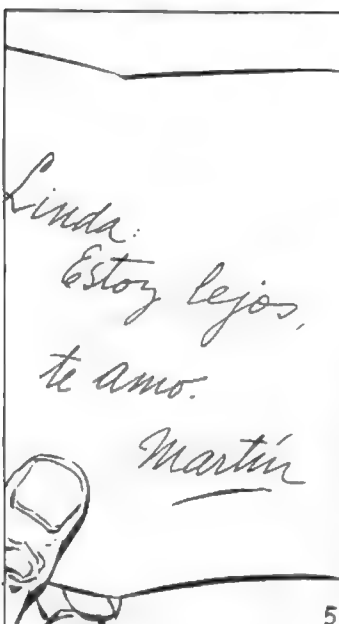 Linda:
Estoy lejos,
te amo.
Martín
5